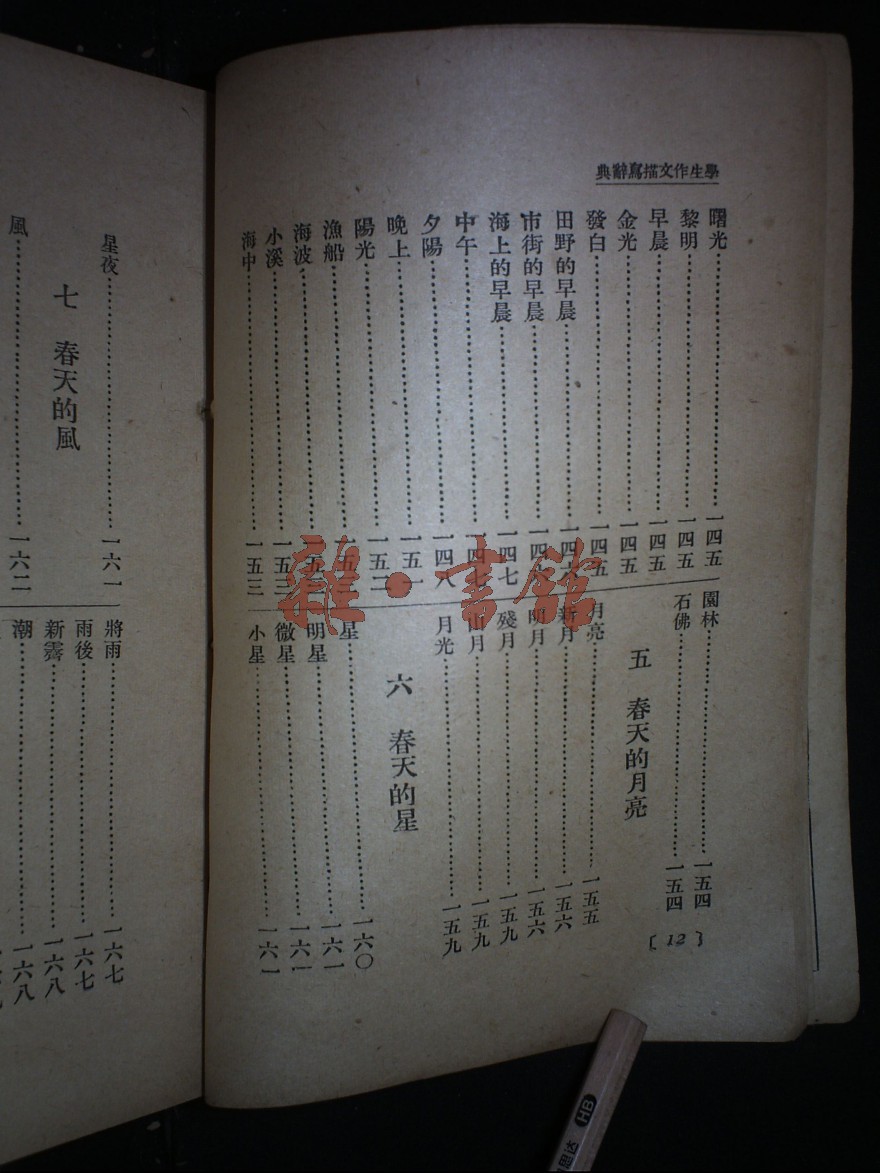 學生作文描寫辭典
曙光……一四五
黎明……一四五
早晨……一四五
金光……一四五
發白……一四五
田野的早晨……一四六
市街的早晨……一四六
海上的早晨……一四七
中午……一四七
夕陽……一四八
晚上……一五一
陽光……一五二
漁船……一五
海波……一五
小溪……一五三
海中……一五三
園林……一五四
石佛……一五四
五 春天的月亮
月亮……一五五
新月……一五六
明月……一五六
殘月……一五九
山月……一五九
月光……一五九
六 春天的星
星……一六〇
明星……一六一
微星……一六一
小星……一六一
〔12〕
星夜……一六一
七 春天的風
風……一六二
將雨……一六七
雨後……一六七
新霽……一六八
潮……一六八
雜·書館
HB